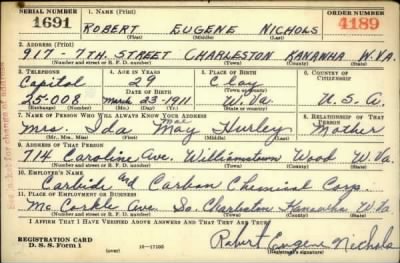 SERIAL NUMBER 1. NAME (Print) ORDER NUMBER
1691 ROBERT EUGENE NICHOLS 4189
(First) (Middle) (Last)
2. ADDRESS (Print)
917 - 7TH. STREET CHARLESTON KANAWHA W.VA.
(Number and street or R. F. D. number) (Town) (County) (State)
3. TELEPHONE 4. AGE IN YEARS 5. PLACE OF BIRTH 6. COUNTRY OF CITIZENSHIP
Capitol 29 Clay
DATE OF BIRTH (Town or county)
25-008 March 23-1911 W. Va. U. S. A.
(Exchange) (Number) (Mo.) (Day) (Yr.) (State or country)
7. NAME OF PERSON WHO WILL ALWAYS KNOW YOUR ADDRESS 8. RELATIONSHIP OF THAT PERSON
Mrs. Ida May Hurley Mother
(Mr., Mrs., Miss) (First) (Middle) (Last)
9. ADDRESS OF THAT PERSON
714 Caroline Ave. Williamstown Wood W. Va.
(Number and street or R. F. D. number) (Town) (County) (State)
10. EMPLOYER'S NAME
Carbide and Carbon Chemical Corp.
11. PLACE OF EMPLOYMENT OR BUSINESS
Mc Corkle Ave So. Charleston Kanawha W. Va
(Number and street or R. F. D. number) (Town) (County) (State)
I AFFIRM THAT I HAVE VERIFIED ABOVE ANSWERS AND THAT THEY ARE TRUE.
REGISTRATION CARD
D. S. S. FORM 1 (over) 16-17105 Robert Eugene Nichols
(Registrant's signature)